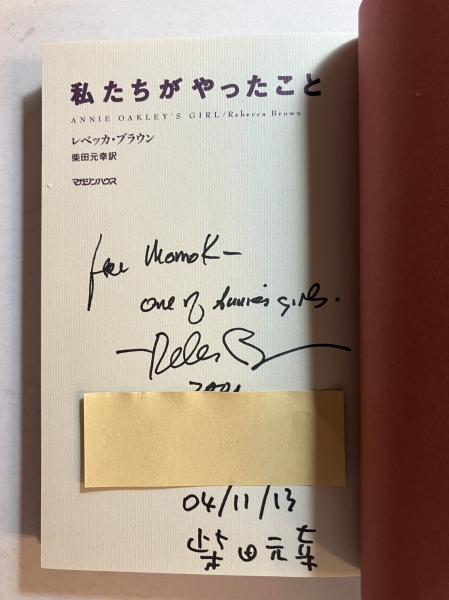 私たちがやったこと
ANNIE OAKLEY'S GIRL/Rebecca Brown
レベッカ・ブラウン
柴田元幸訳
マガジンハウス
for Momok—
one of Annie's girls.
04/11/13
柴田元幸